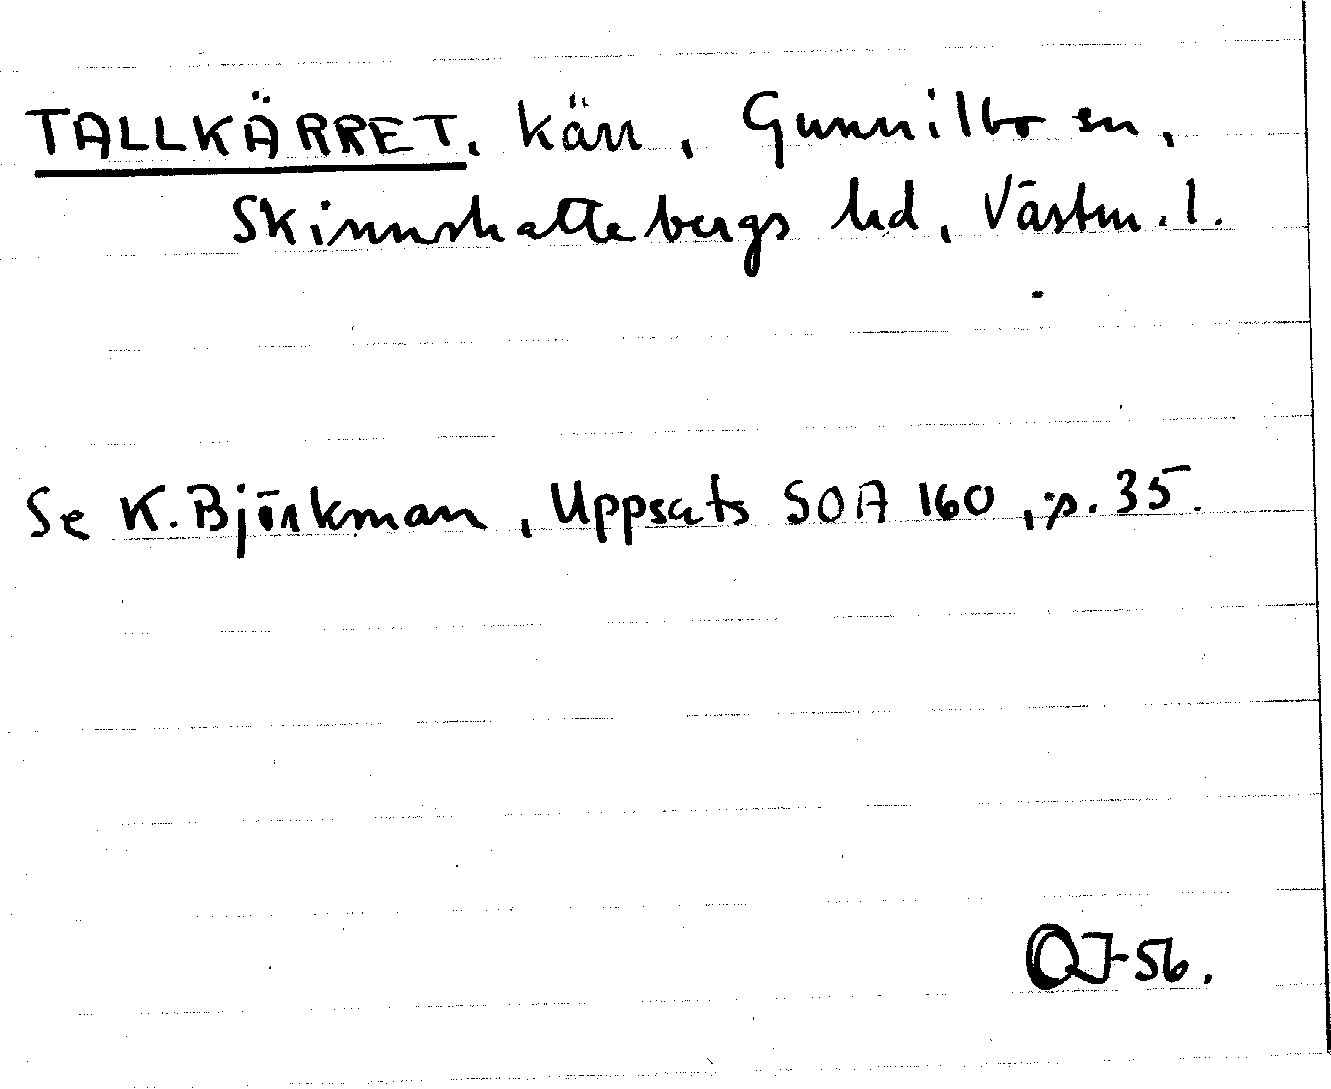 TALLKÄRRET, kärr, Gunnilbo sn,
Skinnskattebergs hd, Västm. l.
Se K. Björkman, Uppsats SOA 160, p. 35.
OJ-56.